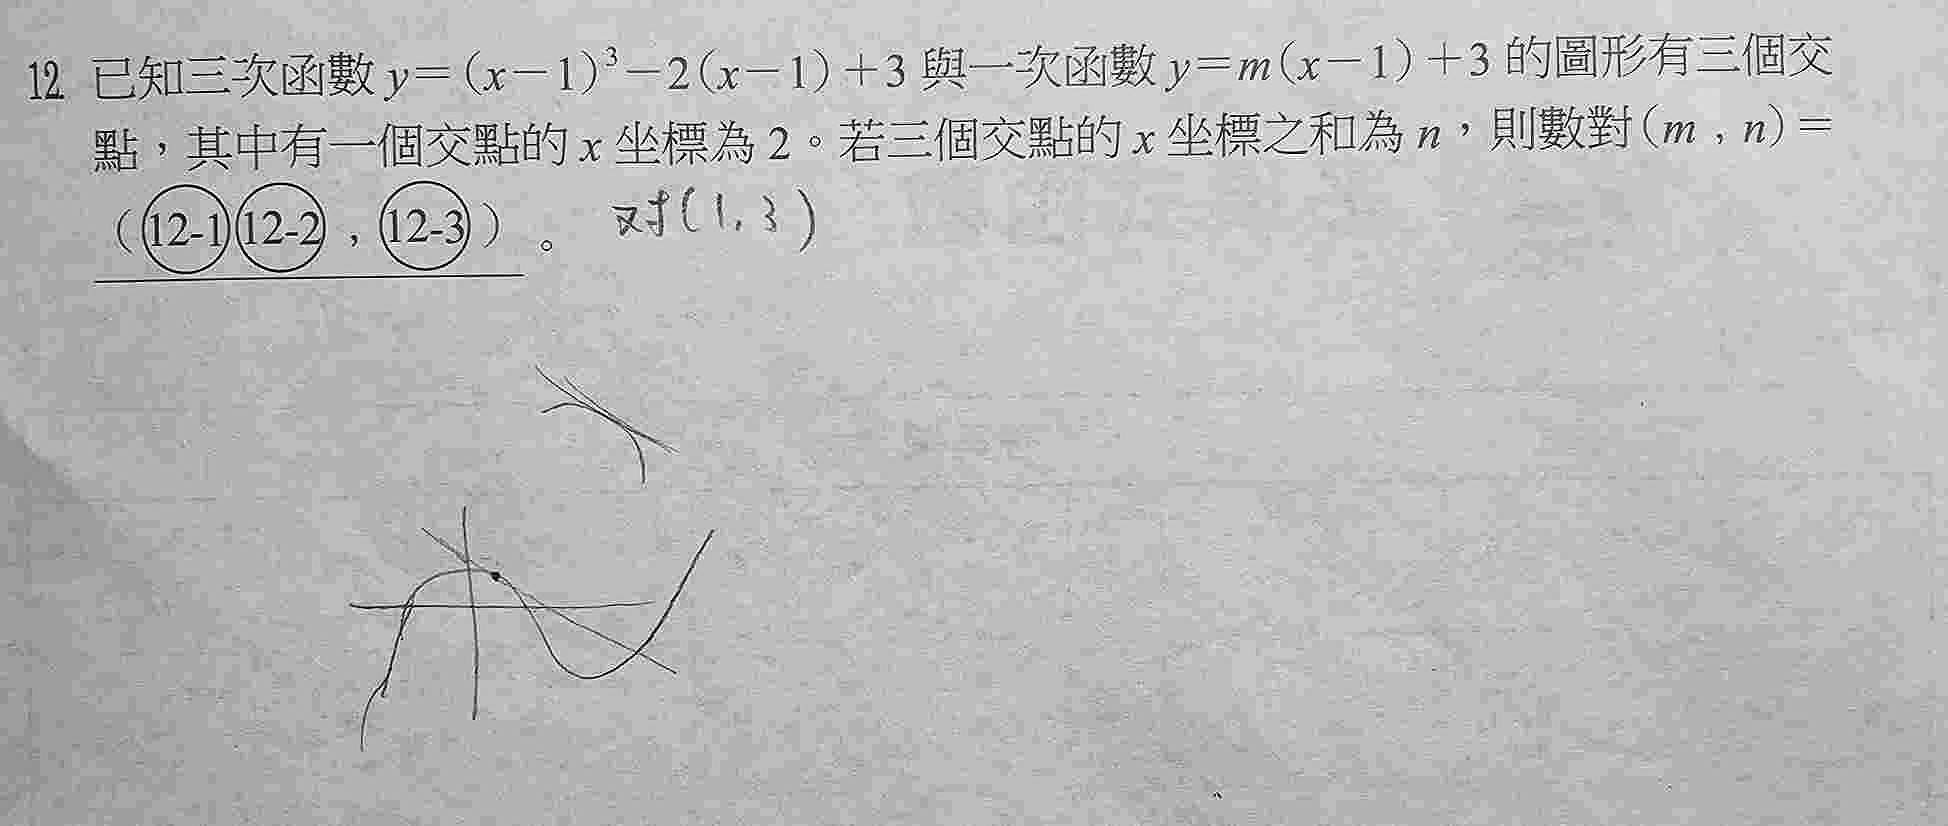 12. 已知三次函數 y=(x-1)³-2(x-1)+3 與一次函數 y=m(x-1)+3 的圖形有三個交
點，其中有一個交點的 x 坐標為 2。若三個交點的 x 坐標之和為 n，則數對(m , n)=
(12-1 12-2 , 12-3) 。 对(1,3)